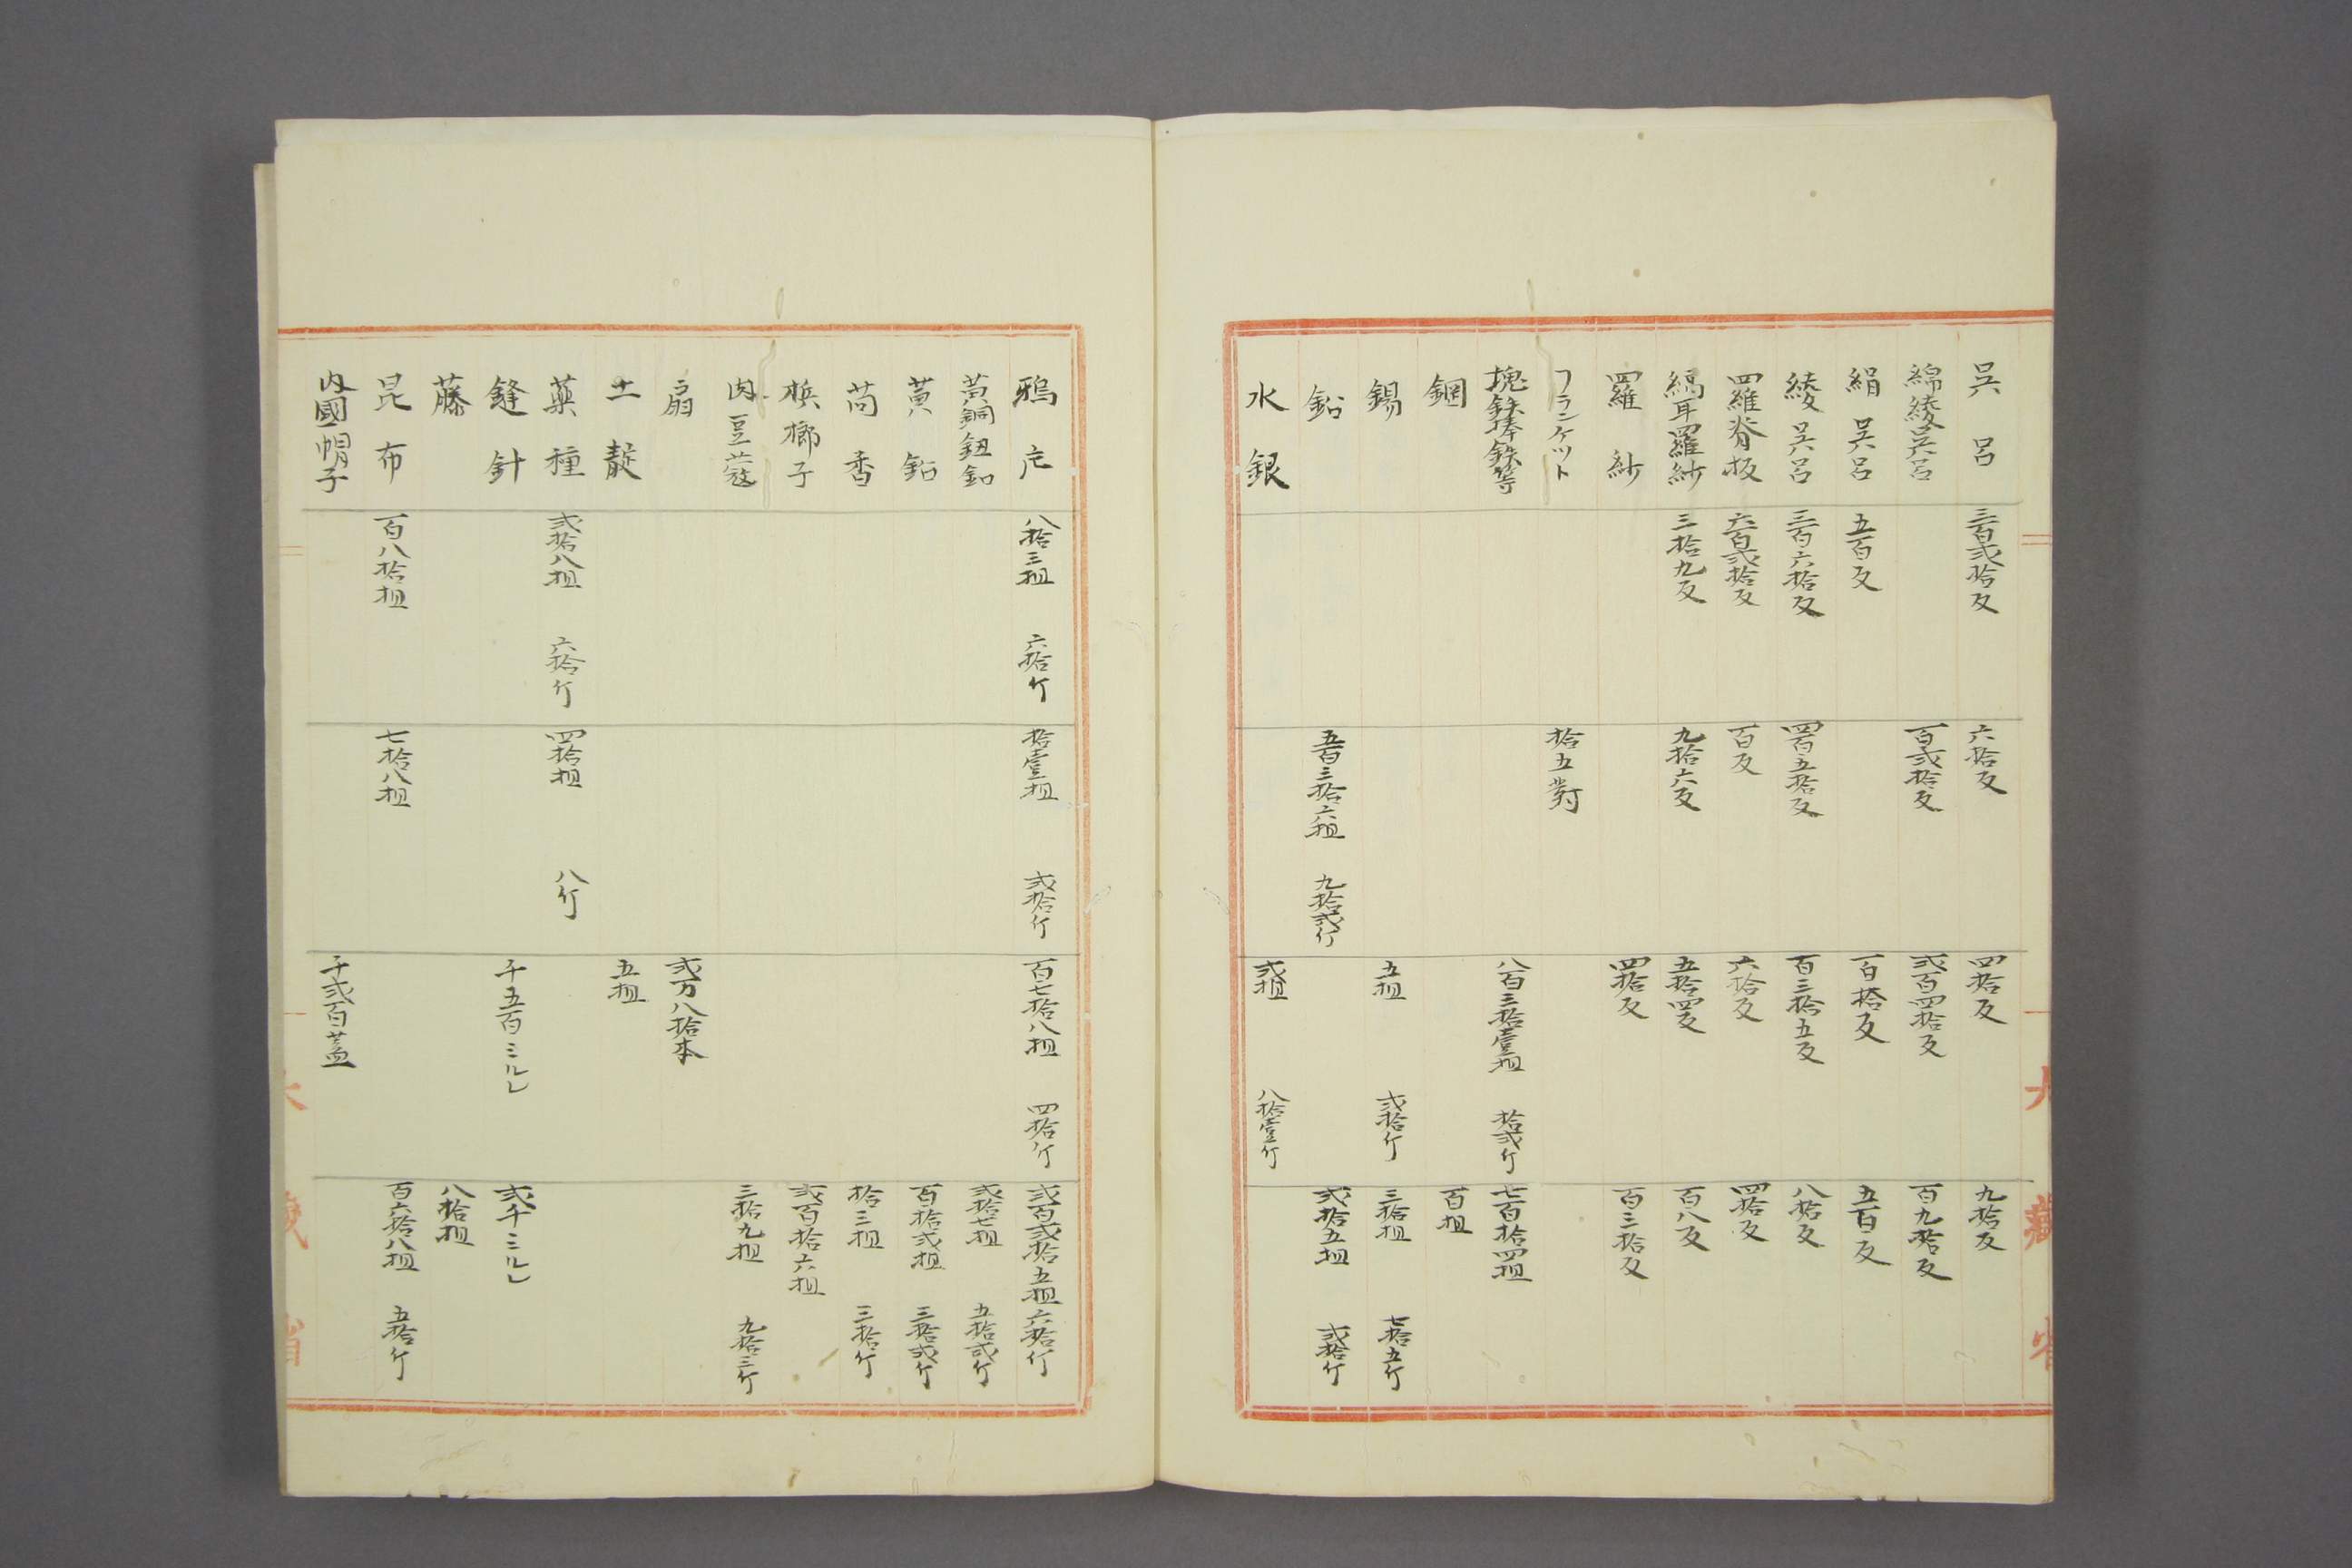 呉呂 三百弐拾反 六拾反 四拾反 九拾反
綿綾呉呂 百弐拾反 弐百四拾反 百九拾反
絹呉呂 五百反 百拾反 五百反
綾呉呂 三百六拾反 四百五拾反 百三拾五反 八拾反
羅脊板 六百弐拾反 百反 六拾反 四拾反
縞耳羅紗 三拾九反 九拾六反 五拾四反 百八反
羅紗 四拾反 百三拾反
フランケット 拾五對
塊鉄棒鉄等 八百三拾壹担 拾弐斤 七百拾四担
鋼 百担
錫 五担 弐拾斤 三拾担 七拾五斤
鉛 五百三拾六担 九拾弐斤 弐拾五担 弐拾斤
水銀 弐担 八拾壹斤
大藏省
鴉片 八拾三担 六拾斤 拾壹担 弐拾斤 百七拾八担 四拾斤 弐百弐拾五担 六拾斤
黄銅鈕釦 弐拾七担 五拾弐斤
黄鉛 百拾弐担 三拾弐斤
茴香 拾三担 三拾斤
梹榔子 弐百拾六担
肉豆蔲 三拾九担 九拾三斤
扇 弐万八拾本
土靛 五担
薬種 弐拾八担 六拾斤 四拾担 八斤
縫針 千五百ミルレ 弐千ミルレ
藤 八拾担
昆布 百八拾担 七拾八担 百六拾八担 五拾斤
内國帽子 千弐百蓋
大藏省